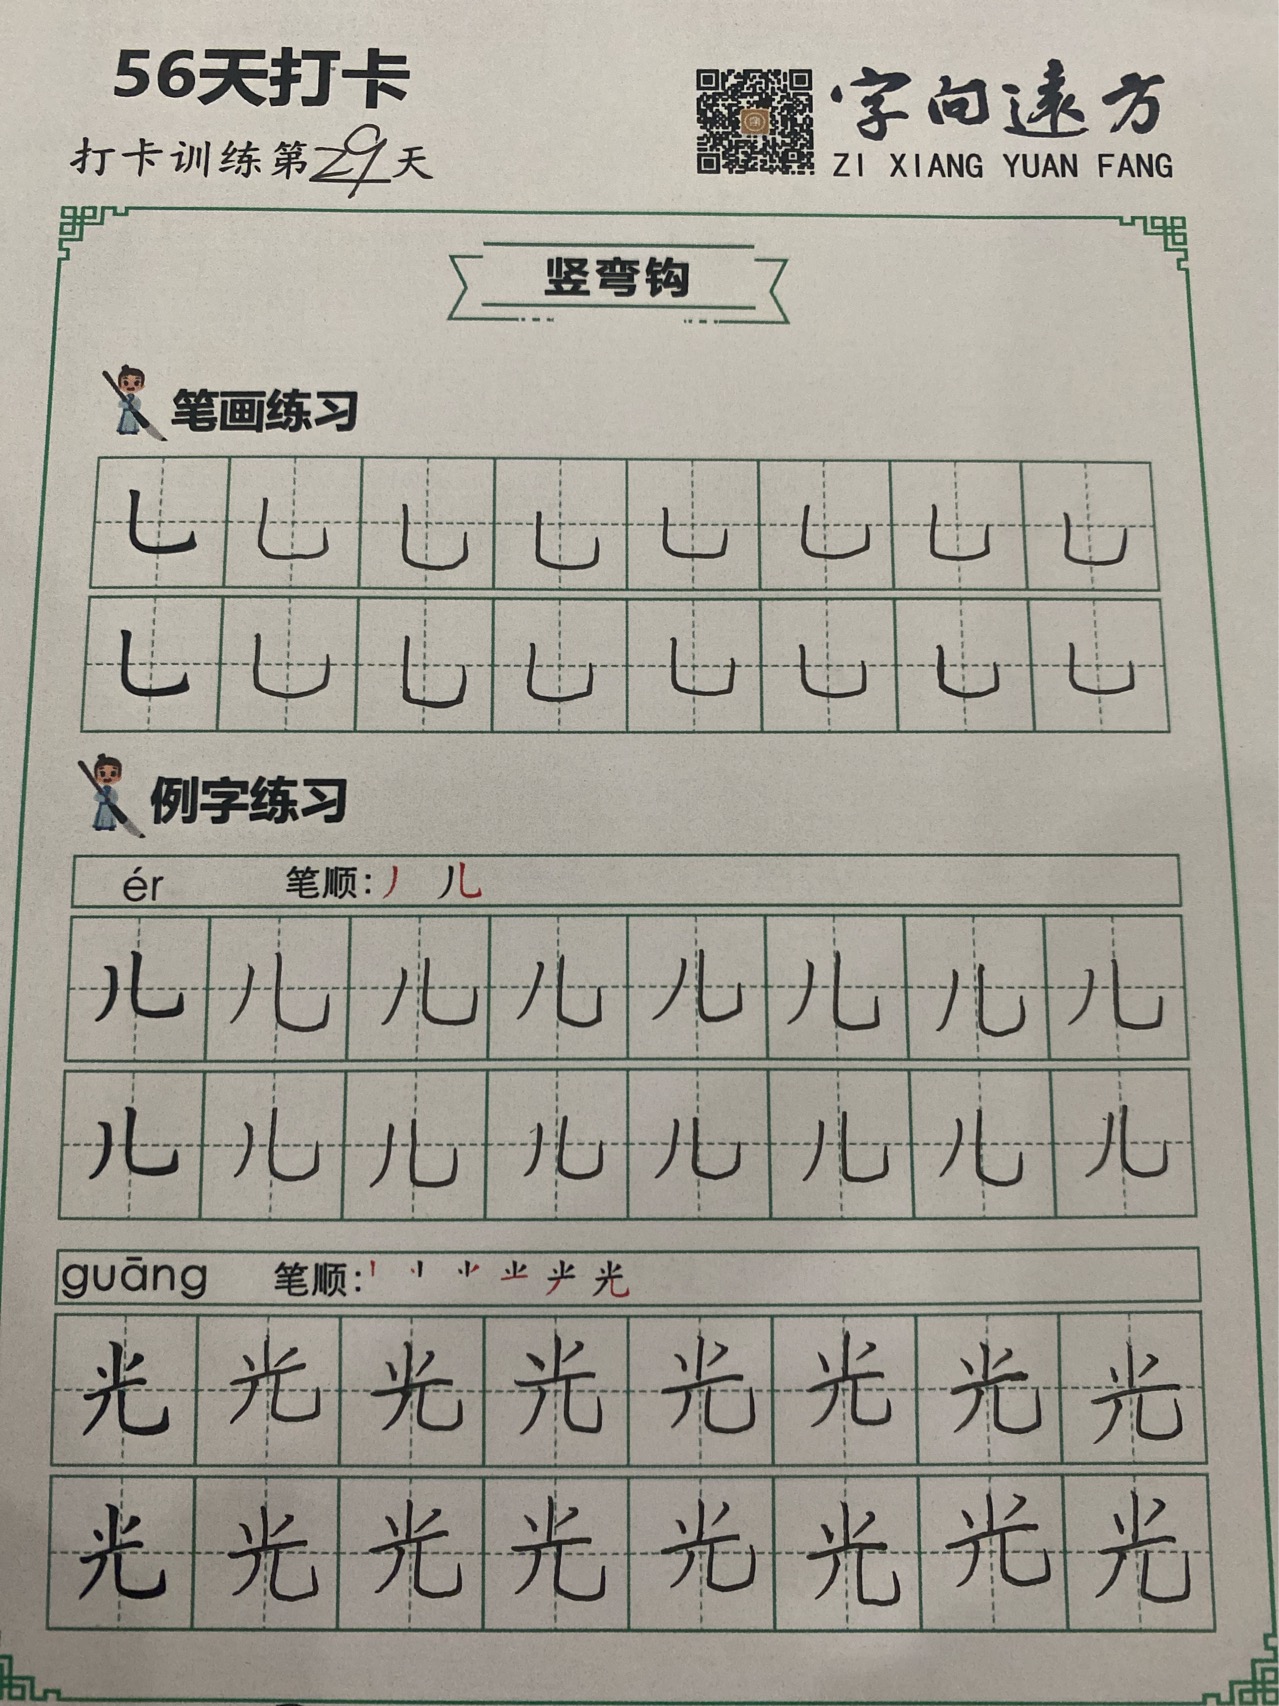 56天打卡
字向遠方
打卡训练第29天
ZI XIANG YUAN FANG
竖弯钩
笔画练习
乚 乚 乚 乚 乚 乚 乚 乚
乚 乚 乚 乚 乚 乚 乚 乚
例字练习
ér 笔顺:丿 儿
儿 儿 儿 儿 儿 儿 儿 儿
儿 儿 儿 儿 儿 儿 儿 儿
guāng 笔顺: 光
光 光 光 光 光 光 光 光
光 光 光 光 光 光 光 光